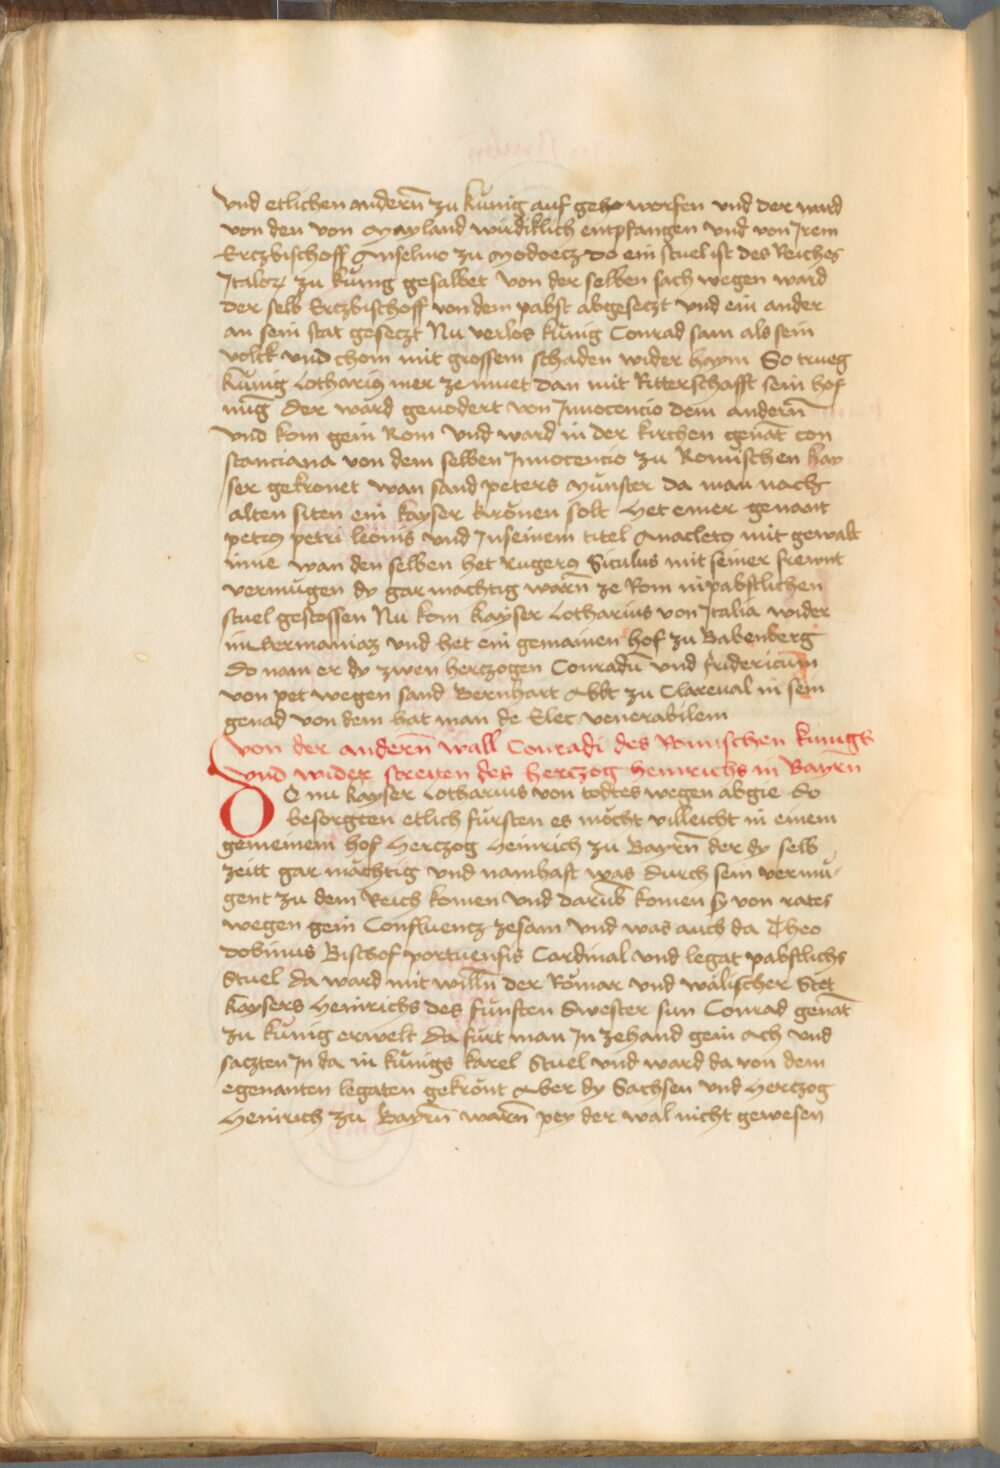 vnd etlichen andern̄ zu künig auf geho worfen vnd der ward
von den von Mayland wirdiklich entpfangen vnd von Irem
Erczbischoff Anselmo zu Modoecz do ein stuel ist des Reiches
Italoꝝ zu künig gesalbet Von der selben sach wegen ward
der selb Erczbischoff von dem pabst abgeseczt vnd ein ander
an sein stat geseczt Nu verlos künig Conrad sam als sein
volck vnd chom mit grossem schaden wider haym So trueg
künig Lothariꝰ mer ze muet dan mit Ritterschafft sein hof
nūg Der ward geuodert von Innocencio dem andern̄
vnd kom gein Rom vnd ward in der kirchen genāt con
stanciana von dem selben Innocencio zu Romischen kay
ser gekronet wan sand peters Münster da man nach
alten siten ein kayser krönen solt Het einer genant
petrꝰ petri leonis vnd In seinem titel Anacletꝰ mit gewalt
inne wan den selben het Rugerꝰ Siculus mit seiner frewnt
vermügen dy gar mächtig warn̄ ze Rom in pabstlichen
stuel gestossen Nu kom kayser Lotharius von Italia wider
in Germaniaz vnd het ein gemainen hof zu Babenberg
Do nam er dy zwen herczogen Conradū vnd fridericum
von pet wegen sand Bernhart Abbt zu Clareual in sein
genad von dem hat man de Elec venerabilem
Von der andern̄ wall Conradi des Romischen kunigs
vnd wider streiten des herczog heinrichs in Bayrn̄
DO nu kayser Lotharius von todtes wegen abgie do
besorgten etlich fürsten es möcht villeicht in einem
gemeinem hof Herczog Heinrich zu Bayrn̄ der dy selb
zeitt gar mächtig vnd namhaft was durch sein vermü-
gent zu dem Reich komen vnd darūb komen sy von rates
wegen gein Confluencz zesam vnd was auch da Theo
dobinus Bischof portuensis Cardinal vnd legat pabstlichs
Stuel da ward mit willn̄ der Römar vnd wälischer Stet
Kaysers Heinrichs des funften Swester sun Conrad genāt
zu künig erwelt Da fürt man In zehand gein Ach vnd
saczten In da in künigs karel Stuel vnd ward da von dem
egenanten legaten gekrönt Aber dy Sachsen vnd Herczog
Heinrich zu Bayrn̄ warn̄ pey der wal nicht gewesen